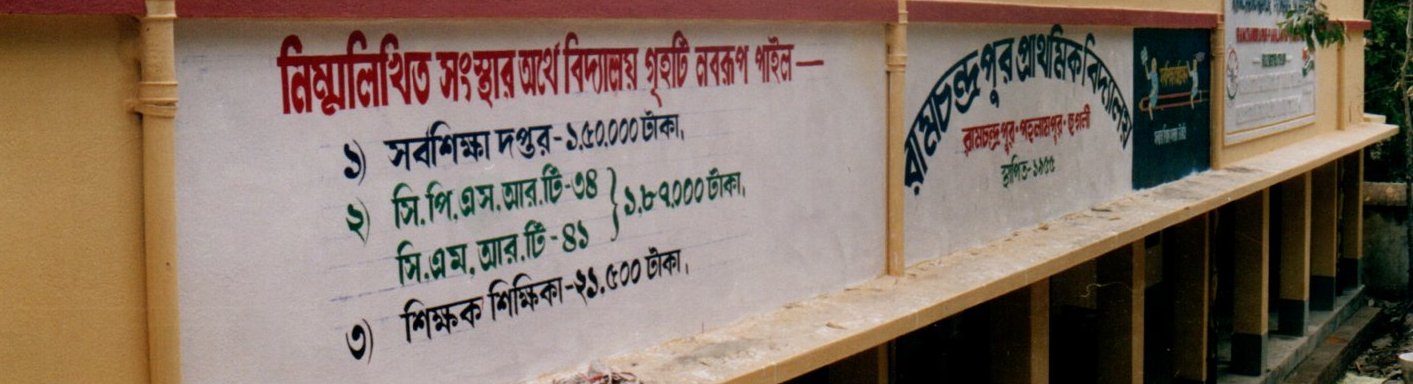 নিম্নলিখিত সংস্থার অর্থে বিদ্যালয় গৃহটি নবরূপ পাইল —
১) সর্বশিক্ষা দপ্তর-১.৫০.০০০ টাকা,
২) সি.পি.এস.আর.টি-৩৪
সি.এম,আর.টি-৪১ } ১.৮৭.০০০ টাকা,
৩) শিক্ষক শিক্ষিকা-২১.৫০০ টাকা,
রামচন্দ্রপুর প্রাথমিক বিদ্যালয়
রামচন্দ্রপুর·পহলামপুর·হুগলী
স্থাপিত-১৯৫৫